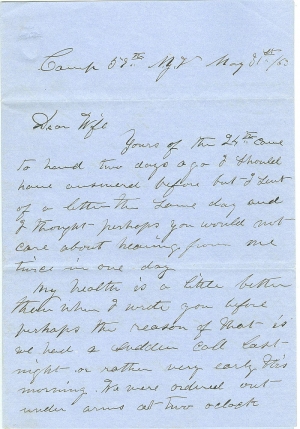 Camp 59th N.Y.V May 31st /63
Dear Wife
Yours of the 24th came
to hand two days ago I should
have answered before but I sent
of a letter the same day and
I thought perhaps you would not
care about hearing from me
twice in one day
My health is a little better
then when I wrote you before
perhaps the reason of that is
we had a sudden call last
night or rather very early this
morning. We were ordered out
under arms at two oclock